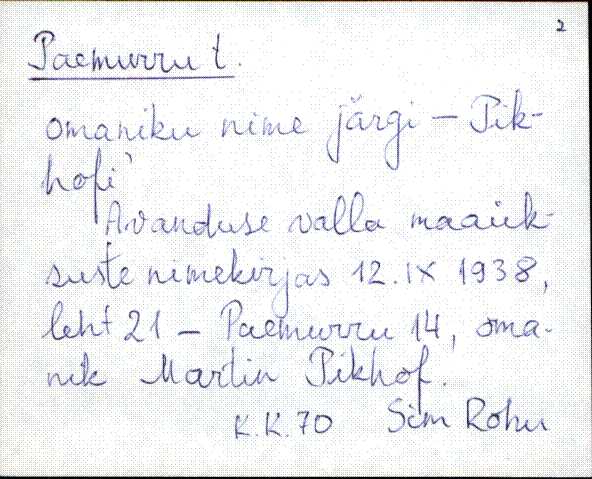 2
Paemurru t.
omaniku nime järgi – Pik-
hofi
Avanduse valla maaük-
suste nimekirjas 12. IX 1938,
leht 21 – Paemurru 14, oma-
nik Martin Pikhof.
K.K. 70 Siim Rohu